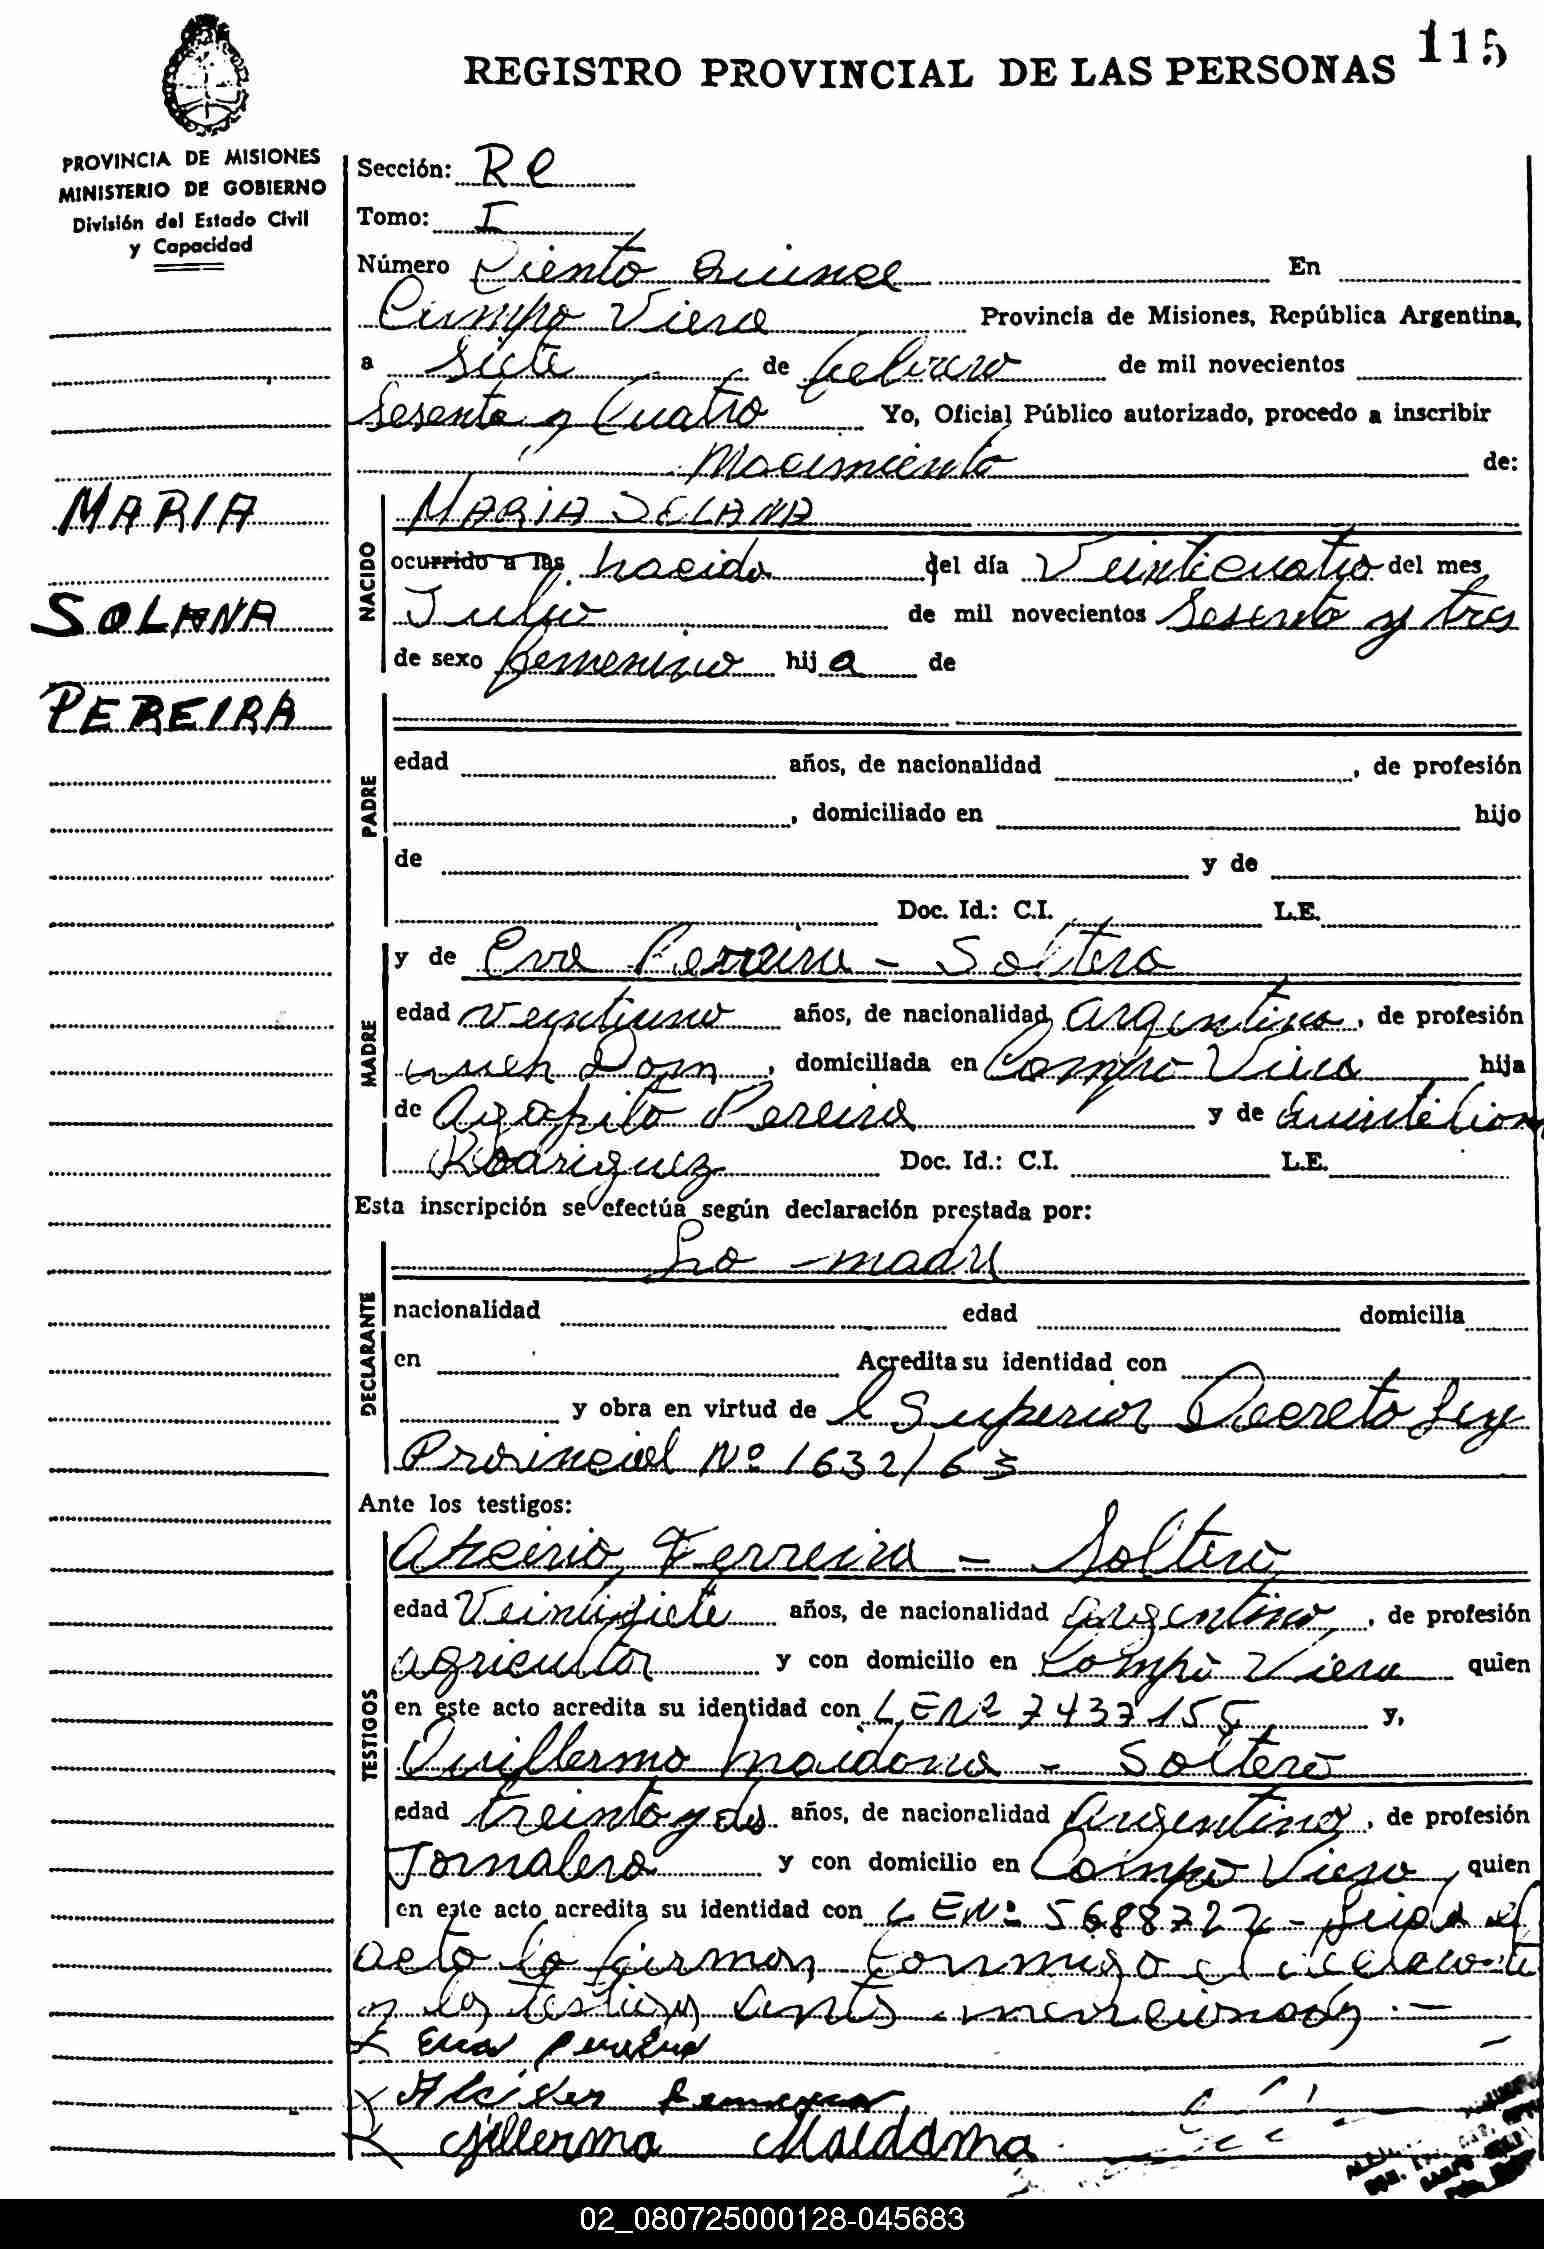 REGISTRO PROVINCIAL DE LAS PERSONAS 115
PROVINCIA DE MISIONES
MINISTERIO DE GOBIERNO
División del Estado Civil
y Capacidad
MARIA
SOLANA
PEREIRA
Sección: RC
Tomo: I
Número Ciento Quince En
Campo Viera Provincia de Misiones, República Argentina,
a Siete de febrero de mil novecientos
Sesenta y Cuatro Yo, Oficial Público autorizado, procedo a inscribir
Nacimiento de:
NACIDO
MARIA SOLANA
ocurrido a las nacida del día Veinticuatro del mes
Julio de mil novecientos Sesenta y tres
de sexo femenino hija de
PADRE
edad años, de nacionalidad , de profesión
, domiciliado en hijo
de y de
Doc. Id.: C.I. L.E.
MADRE
y de Eva Pereira - Soltera
edad veintiuno años, de nacionalidad Argentina, de profesión
Dom , domiciliada en Campo Viera hija
de Agapito Pereira y de
Rodriguez Doc. Id.: C.I. L.E.
Esta inscripción se efectúa según declaración prestada por:
DECLARANTE
La madre
nacionalidad edad domicilia
en Acredita su identidad con
y obra en virtud de l Superior Decreto Ley
Provincial Nº 1632/63
Ante los testigos:
TESTIGOS
Ferreira - Soltero
edad Veintisiete años, de nacionalidad Argentino, de profesión
agricultor y con domicilio en Campo Viera quien
en este acto acredita su identidad con LE Nº 7437155 y,
Guillermo Maidana - Soltero
edad treinta y dos años, de nacionalidad Argentino, de profesión
Jornalero y con domicilio en Campo Viera quien
en este acto acredita su identidad con LE Nº 5688722 - Leida el
acto lo firman conmigo el declarante
y los testigos antes mencionados.-
Eva Pereira
Gillermo Maidana
02_080725000128-045683